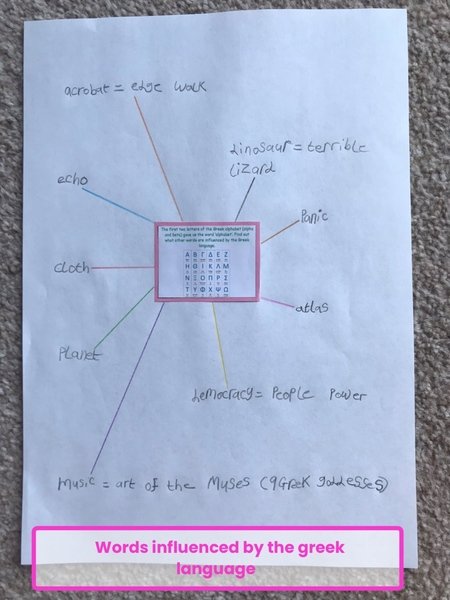 acrobat = edge walk
dinosaur = terrible
lizard
echo
Panic
The first two letters of the Greek alphabet (alpha
and beta) gave us the word 'alphabet'. Find out
what other words are influenced by the Greek
language.
Α Β Γ Δ Ε Ζ
Η Θ Ι Κ Λ Μ
Ν Ξ Ο Π Ρ Σ
Τ Υ Φ Χ Ψ Ω
cloth
atlas
Planet
democracy = People Power
music = art of the Muses (9 Greek goddesses)
Words influenced by the greek
language